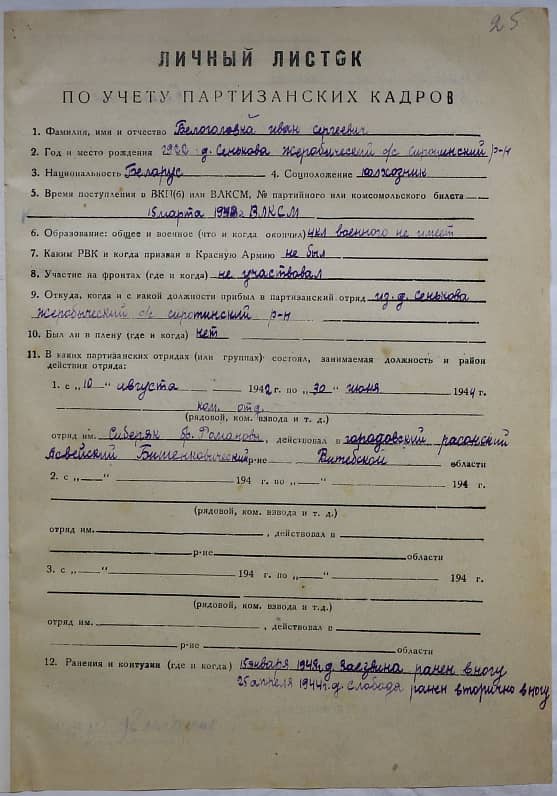 25
ЛИЧНЫЙ ЛИСТОК
ПО УЧЕТУ ПАРТИЗАНСКИХ КАДРОВ
1. Фамилия, имя и отчество Белоголовка иван сергеевич
2. Год и место рождения д. Сенькова жеробический с/с сиротинский р-н
3. Национальность Беларус 4. Соцположение колхозник
5. Время поступления в ВКП(б) или ВЛКСМ, № партийного или комсомольского билета
15 марта ВЛКСМ
6. Образование: общее и военное (что и когда окончил) 4кл военного не имеет
7. Каким РВК и когда призван в Красную Армию не был
8. Участие на фронтах (где и когда) не участвовал
9. Откуда, когда и с какой должности прибыл в партизанский отряд из д. Сенькова
жеробыческий с/с сиротинский р-н
10. Был ли в плену (где и когда) нет
11. В каких партизанских отрядах (или группах) состоял, занимаемая должность и район
действия отряда:
1. с „10“ августа 1942 г. по „30“ июня 1944 г.
ком. отд.
(рядовой, ком. взвода и т. д.)
отряд им. Сибиряк бр. Романова, действовал в городовский расонский
Освейский Бишенковический р-не Витебской области
2. с „ “ 194 г. по „ “ 194 г.
(рядовой, ком. взвода и т. д.)
отряд им. , действовал в
р-не области
3. с „ “ 194 г. по „ “ 194 г.
(рядовой, ком. взвода и т.д.)
отряд им. , действовал в
р-не области
12. Ранения и контузии (где и когда) 15 января д. ранен в ногу
25 апреля 1944 г. д. Слобода ранен вторично в ногу